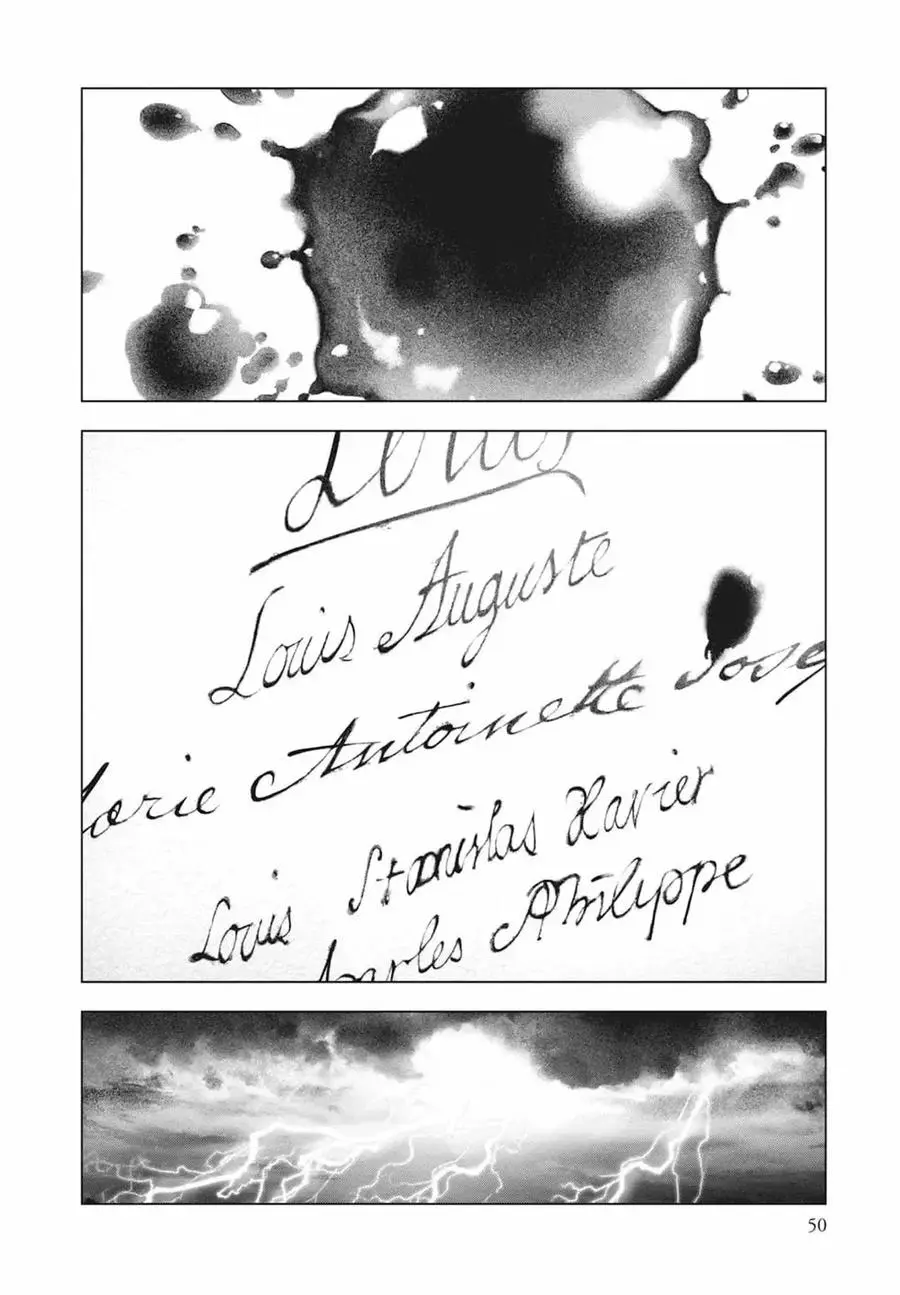 Louis
Louis Auguste
Marie Antoinette Josep
Louis Stanislas Xavier
Charles Philippe
50